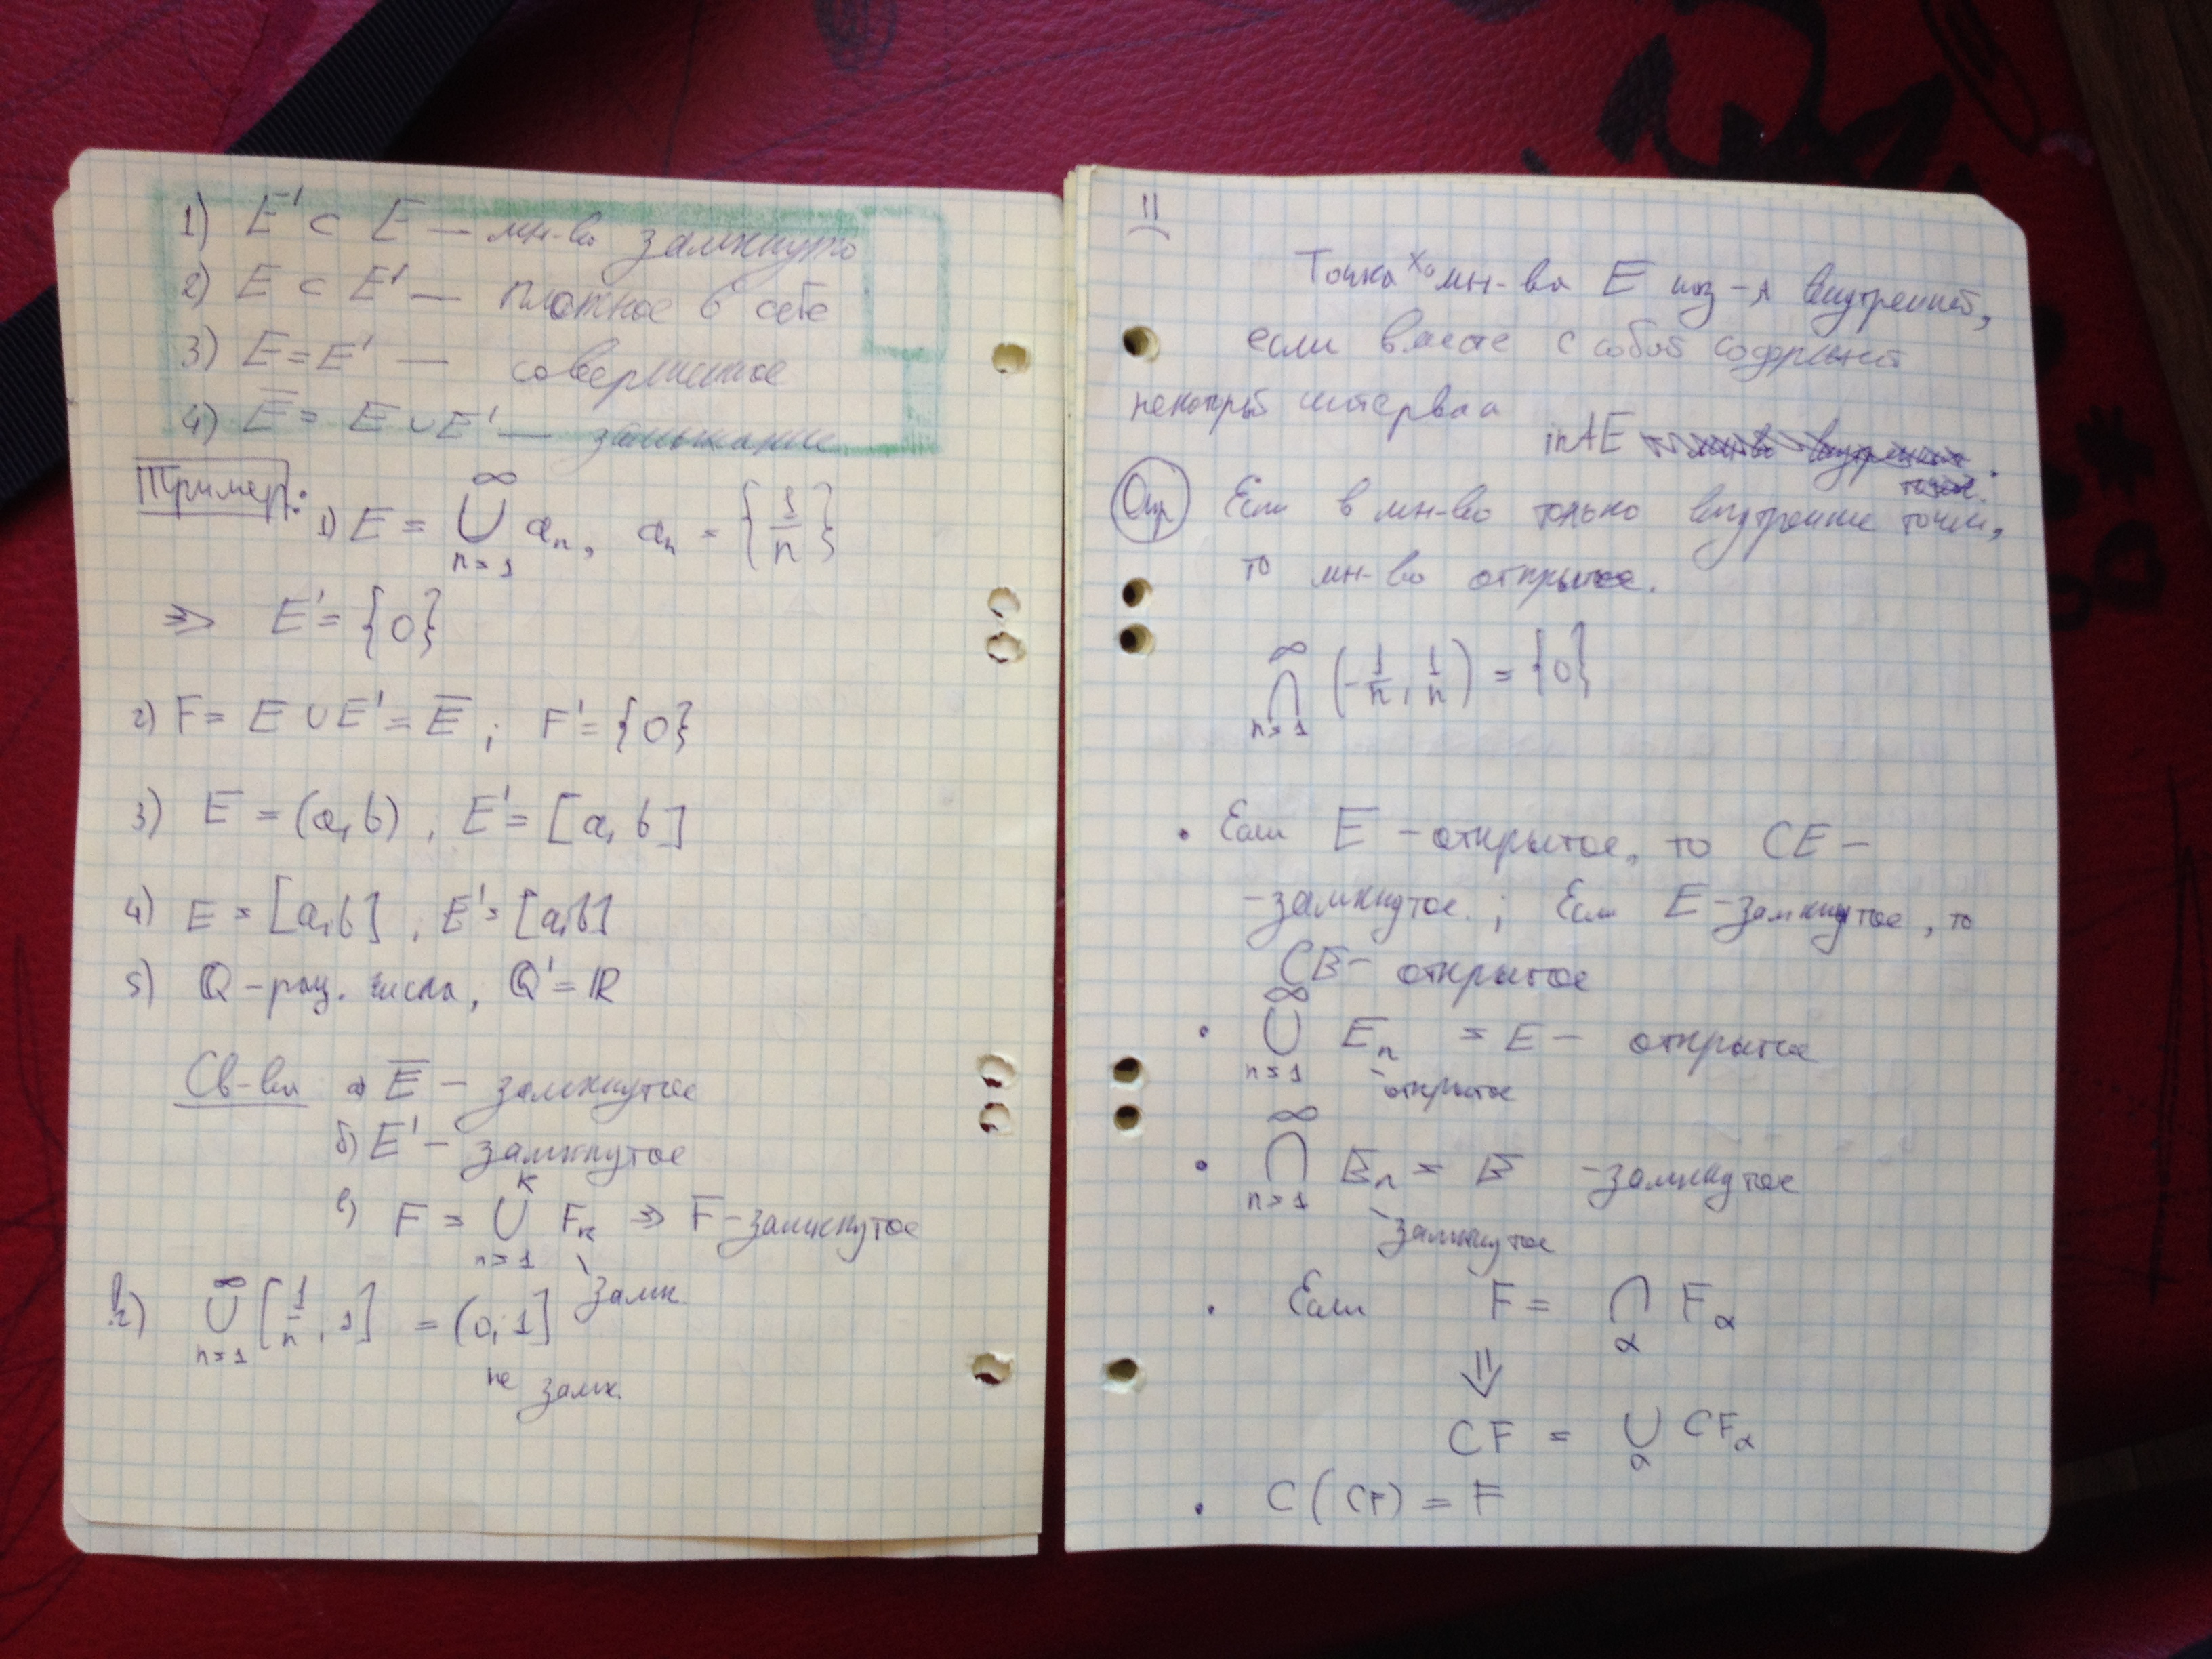 1) E' ⊂ E — мн-во замкнуто
2) E ⊂ E' — плотное в себе
3) E = E' — совершенное
4) E̅ = E ∪ E' — замыкание
Пример:
1) E = ⋃_{n=1}^{∞} a_n, a_n = {1/n}
⇒ E' = {0}
2) F = E ∪ E' = E̅ ; F' = {0}
3) E = (a, b), E' = [a, b]
4) E = [a, b], E' = [a, b]
5) ℚ – рац. числа, ℚ' = ℝ
Св-ва а) E̅ – замкнутое
б) E' – замкнутое
в) F = ⋃_{n=1}^{k} F_k ⇒ F – замкнутое
замк.
г) ⋃_{n=1}^{∞} [1/n, 1] = (0, 1]
не замк.
11
Точка x₀ мн-ва E наз-я внутренней,
если вместе с собой содержит
некоторый интервал
intE
Опр Если в мн-во только внутренние точки,
то мн-во открытое.
⋂_{n=1}^{∞} (-1/n, 1/n) = {0}
• Если E – открытое, то CE –
– замкнутое ; Если E – замкнутое, то
CE – открытое
• ⋃_{n=1}^{∞} E_n = E – открытое
– открытое
• ⋂_{n=1}^{∞} E_n = E – замкнутое
– замкнутое
• Если F = ⋂_α F_α
⇓
CF = ⋃_α CF_α
• C(CF) = F